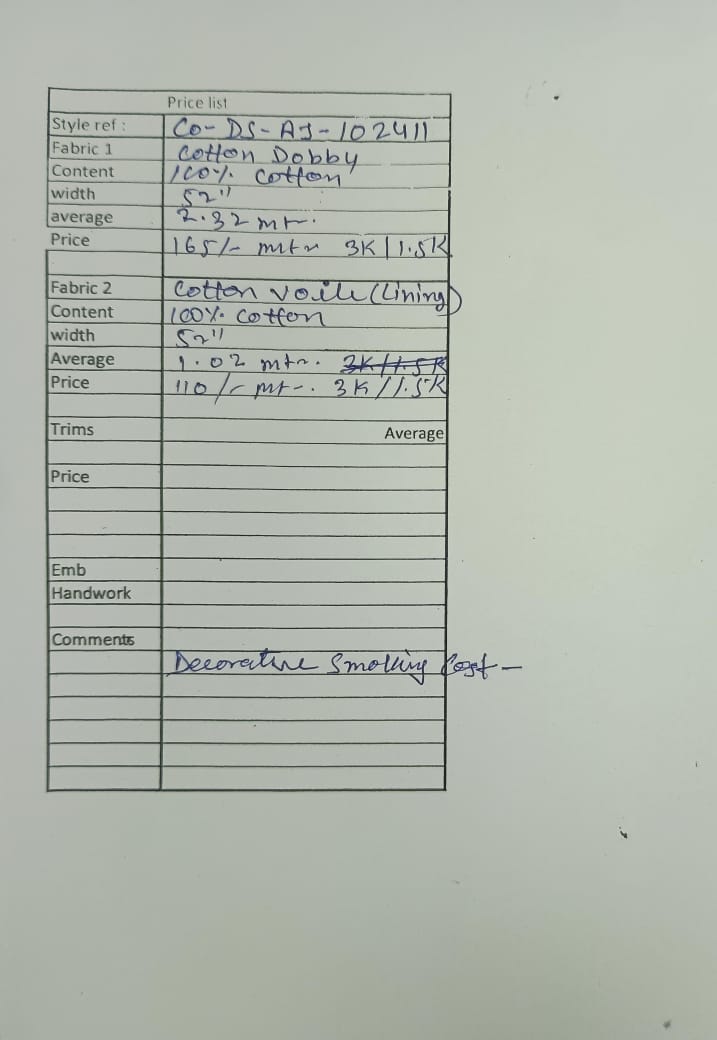 Price list
Style ref : Co-DS-AJ-102411
Fabric 1 Cotton Dobby
Content 100% Cotton
width 52"
average 2.32 mtr.
Price 165/- mtr 3K | 1.5K
Fabric 2 Cotton voile (Lining)
Content 100% Cotton
width 52"
Average 1.02 mtr. 3K/1.5K
Price 110/- mtr. 3K/1.5K
Trims Average
Price
Emb
Handwork
Comments
Decorative Smoking Cost -